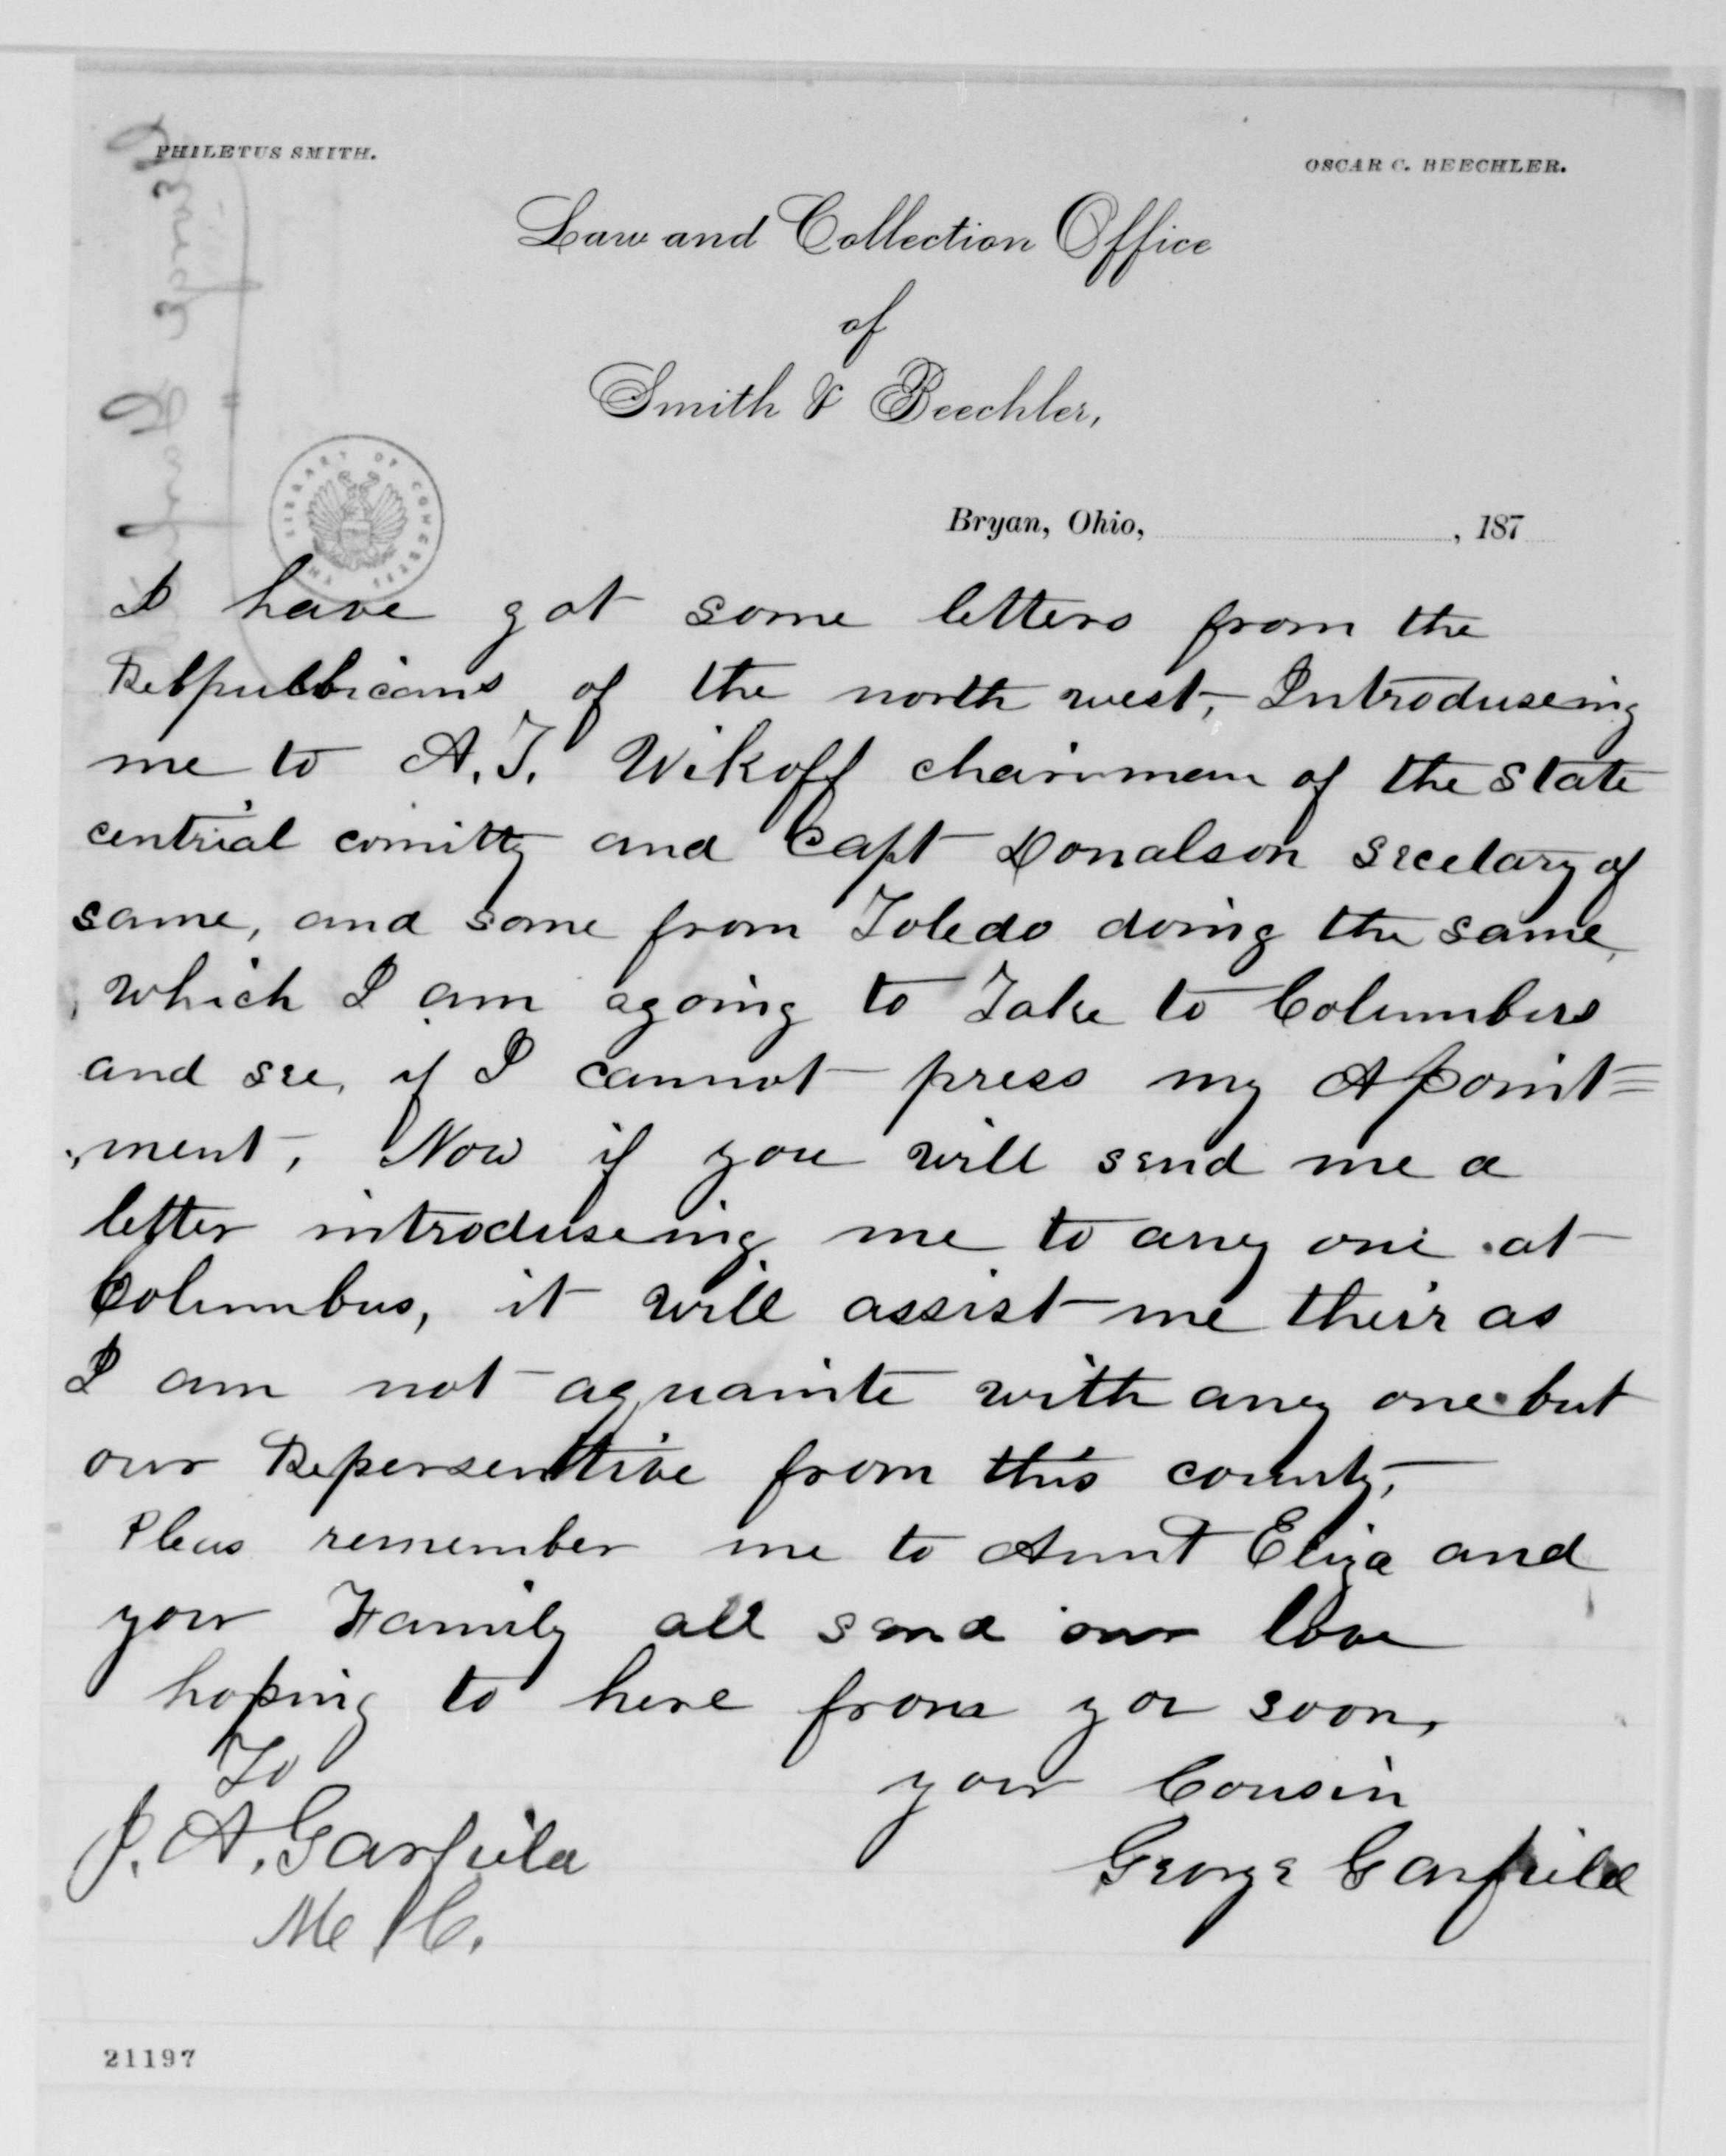 PHILETUS SMITH.
OSCAR C. BEECHLER.
Law and Collection Office
of
Smith & Beechler,
Bryan, Ohio, , 187
THE LIBRARY OF CONGRESS
I have got some letters from the
Rebpubbicans of the north west, Introduseing
me to A. T. Wikoff chairman of the state
central comitty and Capt Donalson Secetary of
same, and some from Toledo doing the same,
which I am agoing to Take to Columbus
and see, if I cannot press my Apoint=
ment, Now if you will send me a
letter introduseing me to any one at
Columbus, it will assist me their as
I am not aquainte with any one but
our Repersenttive from this county,
Pleas remember me to Aunt Eliza and
your Family all send our love
hoping to here from you soon,
To
your Cousin
J. A. Garfield
George Garfield
M C.
21197